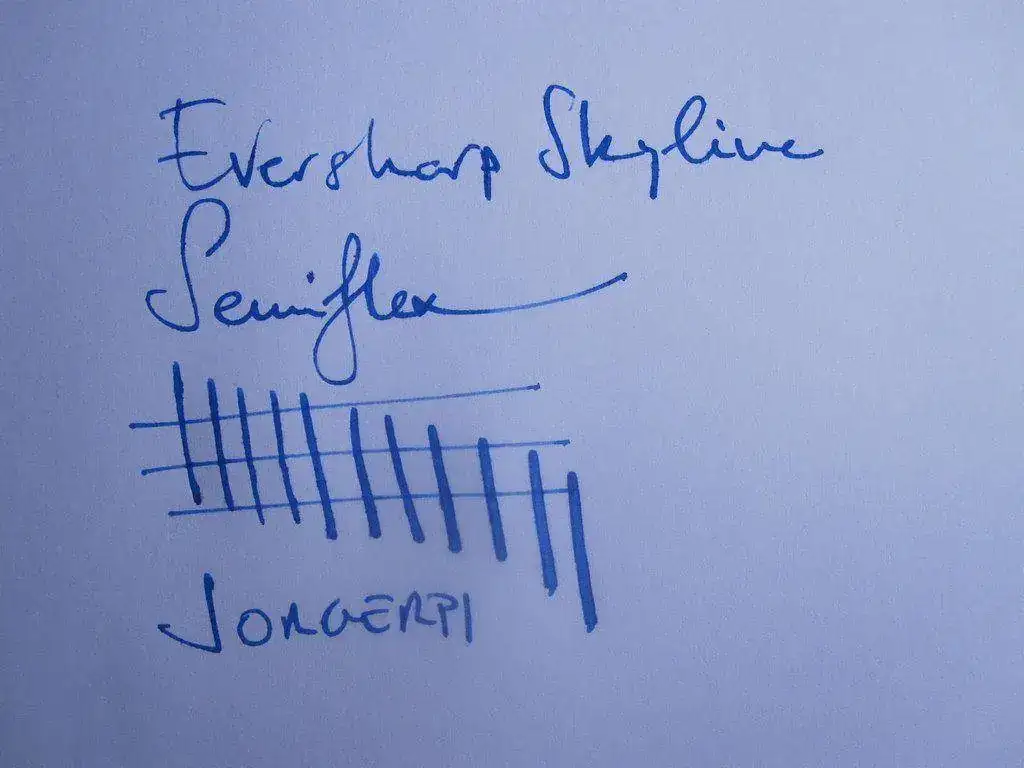 Eversharp Skyline
Semiflex
JORGERPI